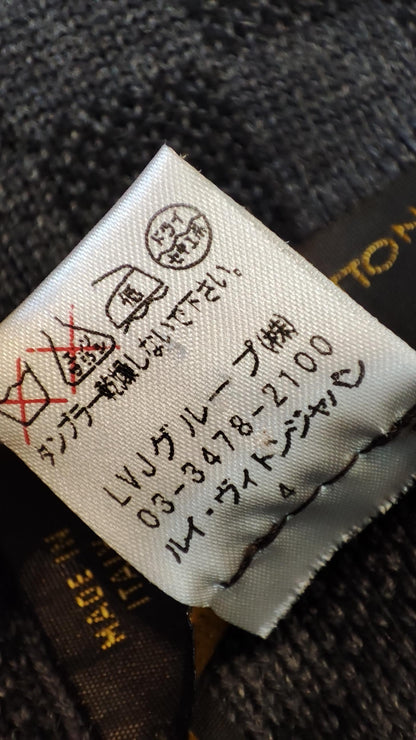 ドライ
セキユ系
低
エンソ
サラシ
タンブラー乾燥しないで下さい。
LVJグループ(株)
03-3478-2100
ルイ・ヴィトンジャパン
4
TTON
MADE IN
ITALY